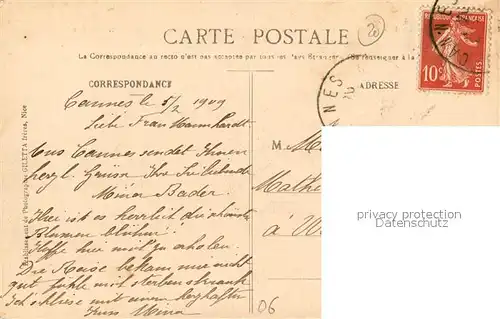 CARTE POSTALE
20
La Correspondance au recto n'est pas acceptée par tous les Pays étrangers. (Se renseigner à la
CORRESPONDANCE
ADRESSE
RÉPUBLIQUE FRANÇAISE
10c
POSTES
CANNES
Cannes le 5/2 1909
Liebe Frau Mannhardt
Aus Cannes sendet Ihnen
herzl. Grüsse Ihre Sie liebende
Mina Bader.
Hier ist es herrlich die schönsten
Blumen blühn!
Hoffe hier mich zu erholen.
Die Reise bekam mir nicht
gut fühle mich sterbenskrank
Ich schliesse mit einem herzhaften
Kuss Mina
M
à
Établissement de Photographie GILETTA frères, Nice
privacy protection
watermark
06